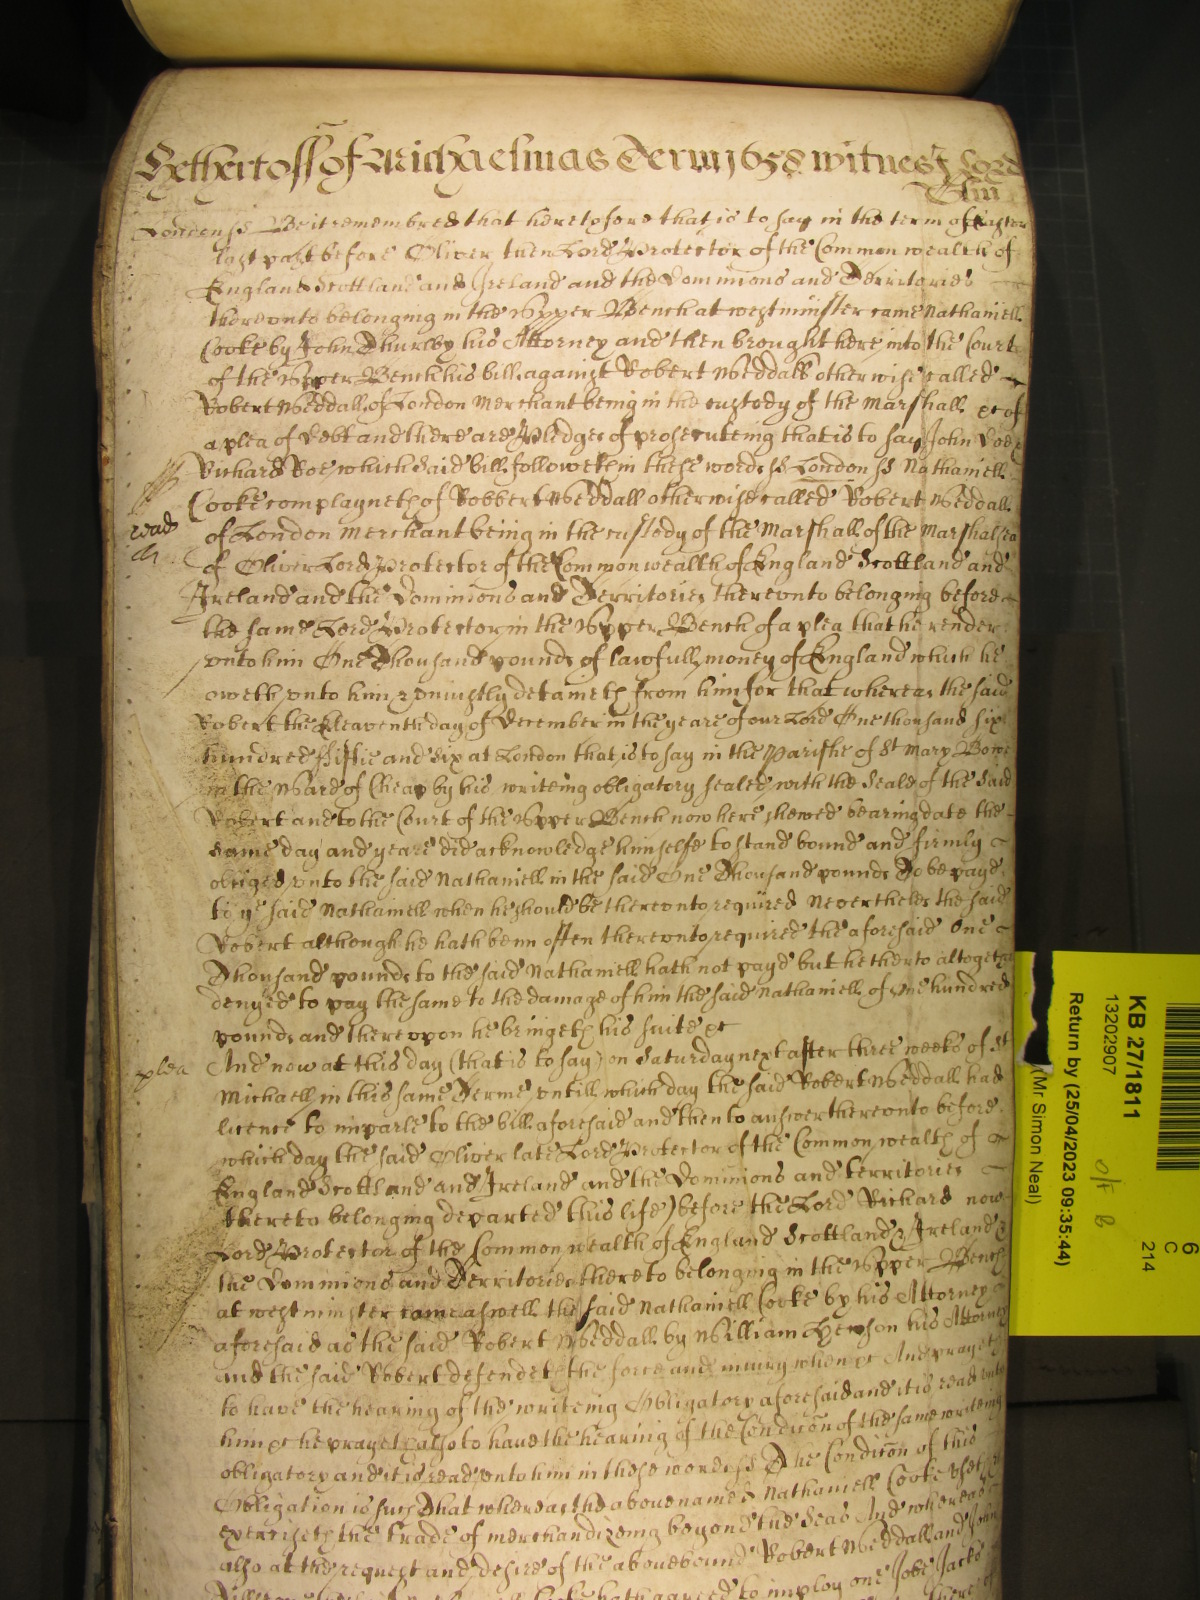 Hethertoss of Michaelmas Term 1658 witnes Lord
London ss Be it remembred that heretofore that is to say in the term of Easter
last past before Oliver then Lord Protector of the Common wealth of
England Scottland and Ireland and the Dominions and Territories
thereunto belonging in the Upper Bench at westminster came Nathaniell
Cooke by John Thursby his Attorney and then brought here into the Court
of the Upper Bench his bill against Robert Weddall otherwise called
Robert Weddall of London Merchant being in the custody of the Marshall &c of
a plea of Debt and there are Pledges of prosecuteing that is to say John Doe
Richard Roe which said bill followeth in these words ss London ss Nathaniell
Cooke complayneth of Robbert Weddall otherwise called Robert Weddall
of London Merchant being in the custody of the Marshall of the Marshalsea
of Oliver Lord Protector of the Common wealth of England Scottland and
Ireland and the Dominions and Territories thereunto belonging before
the same Lord Protector in the Upper Bench of a plea that he render
unto him One Thousand pounds of lawfull money of England which he
oweth unto him & uniustly detaineth from him for that whereas the said
Robert the Eleaventh day of December in the yeare of our Lord One thousand six
hundred fiftie and six at London that is to say in the Parishe of St Mary Bowe
in the Ward of Cheap by his writeing obligatory sealed with the Seale of the said
Robert and to the Court of the Upper Bench now here shewed bearing date the
same day and yeare did acknowledge himselfe to stand bound and firmly
obliged unto the said Nathaniell in the said One Thousand pounds To be payd
to ye said Nathaniell when he should be thereunto required Nevertheles the said
Robert although he hath benn often thereunto required the aforesaid One
Thousand pounds to the said Nathaniell hath not payd but hetherto altogether
denyed to pay the same to the damage of him the said Nathaniell of one hundred
pounds and thereupon he bringeth his suite &c
plea And now at this day (that is to say) on Saturday next after three weeks of St
Michaell in this same Terme untill which day the said Robert Weddall had
licence to imparle to the bill aforesaid and then to answer thereunto before
which day the said Oliver late Lord Protector of the Common wealth of
England Scottland and Ireland and the Dominions and territories
thereto belonging departed this life) before the Lord Richard now
Lord Protector of the Common wealth of England Scottland & Ireland &
the Dominions and Territories thereto belonging in the Upper Bench
at westminster came aswell the said Nathaniell Cooke by his Attorney
aforesaid as the said Robert Weddall by William Hewson his Attorney
and the said Robert defendeth the force and iniury when &c And prayeth
to have the hearing of the writeing Obligatory aforesaid and it is read unto
him &c he prayeth also to have the hearing of the Condicon of the same writeing
obligatory and it is read unto him in these words ss The Condicon of this
Obligation is such That whereas the above named Nathaniell Cooke useth
exerciseth the trade of merchandizeing beyond the Seas And whereas
also at the request and desire of the abovebound Robert Weddall and John
Cooke hath agreed to imploy one Jobe
KB 27/1811
13202907
Return by (25/04/2023 09:35:44)
(Mr Simon Neal)
O/F B
6
C
214